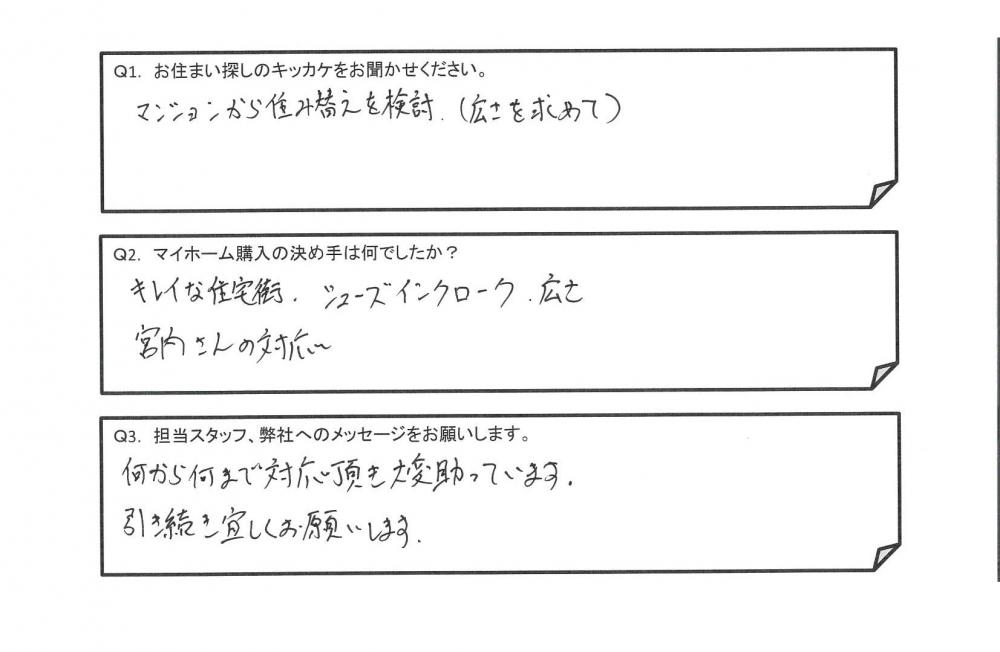 Q1. お住まい探しのキッカケをお聞かせください。
マンションから住み替えを検討.(広さを求めて)
Q2. マイホーム購入の決め手は何でしたか？
キレイな住宅街. シューズインクローク. 広さ
宮内さんの対応
Q3. 担当スタッフ、弊社へのメッセージをお願いします。
何から何まで対応頂き大変助っています.
引き続き宜しくお願いします.